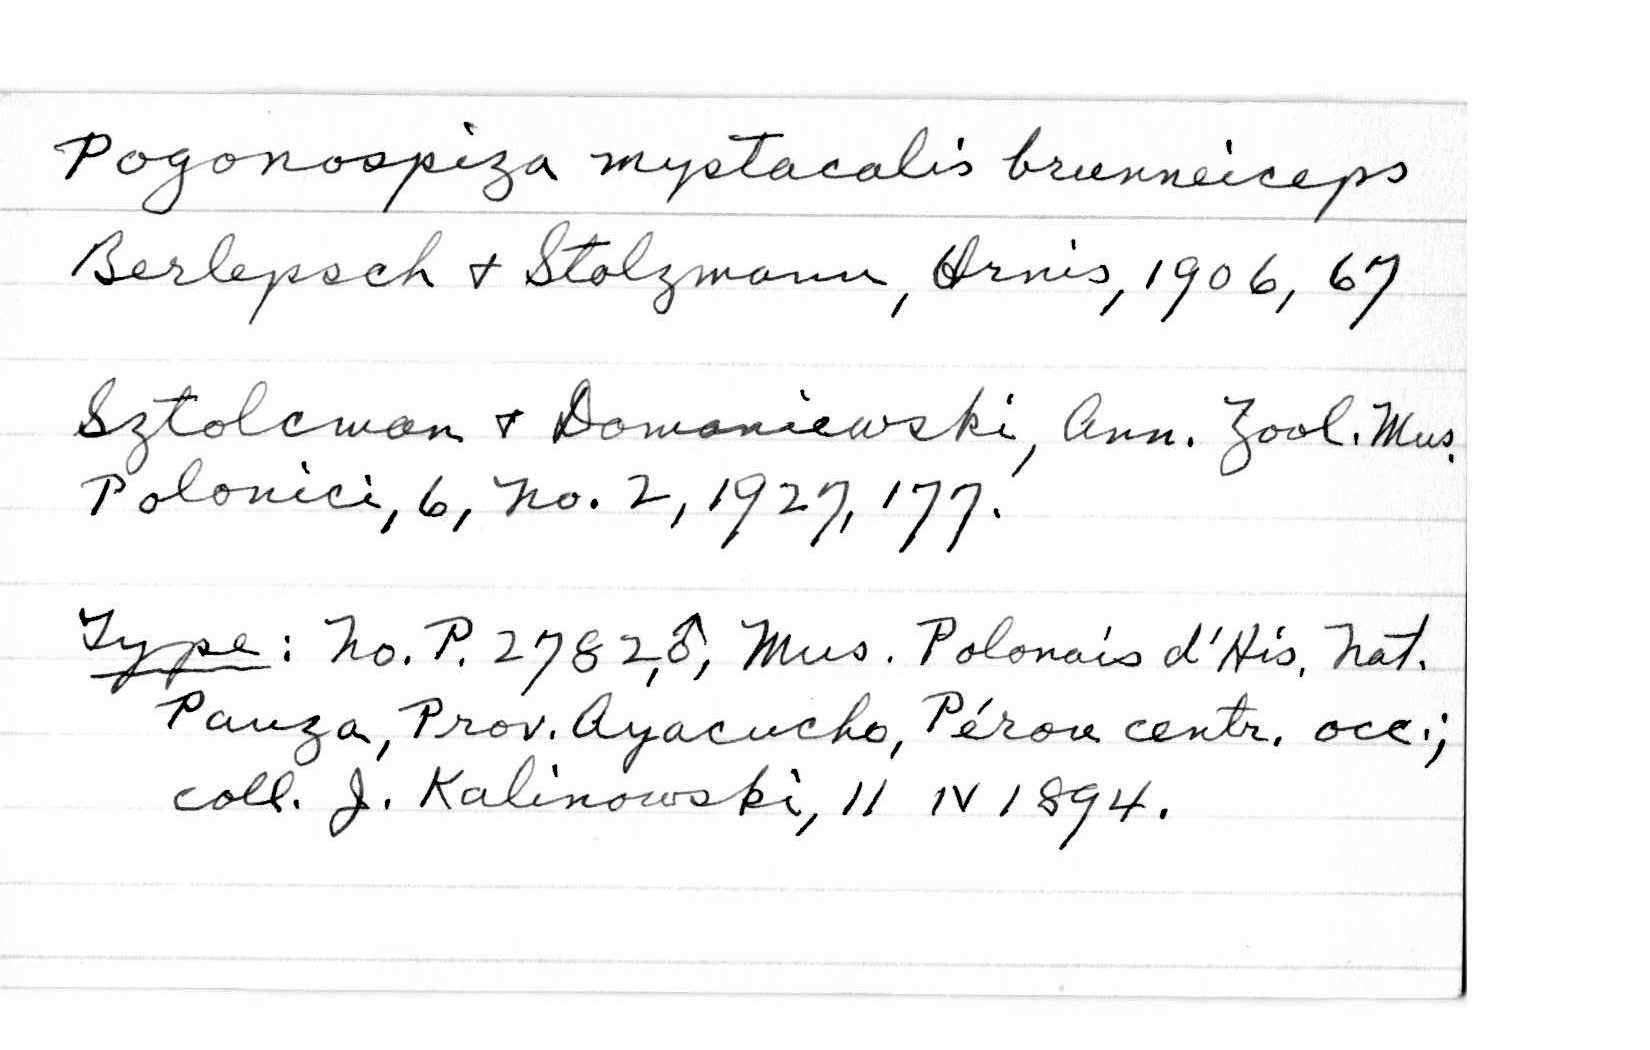 Pogonospiza mystacalis brunneiceps
Berlepsch & Stolzmann, Ornis, 1906, 67
Sztolcman & Domaniewski, Ann. Zool. Mus.
Polonici, 6, No. 2, 1927, 177.
Type: No. P. 2782, ♂, Mus. Polonais d'His. Nat.
Pauza, Prov. Ayacucho, Pérou centr. occ.;
coll. J. Kalinowski, 11 IV 1894.